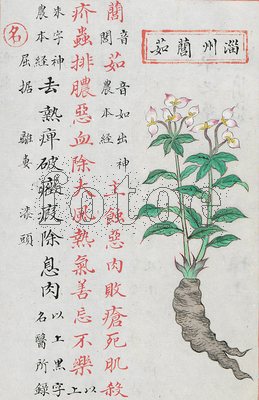 淄州䕡茹
䕡茹音閭音如出神農本經主蝕惡肉敗瘡死肌殺
疥蟲排膿惡血除大風熱氣善忘不樂以上
朱字神農本經去熱痺破癥瘕除息肉以上黑字名醫所錄
名屈據離婁漆頭
fotoe